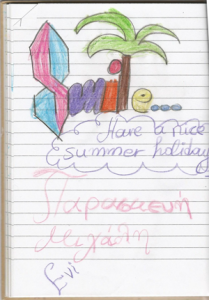 Smile...
Have a nice
& summer holiday
Παρασκευή
Μιχάλη
Evi